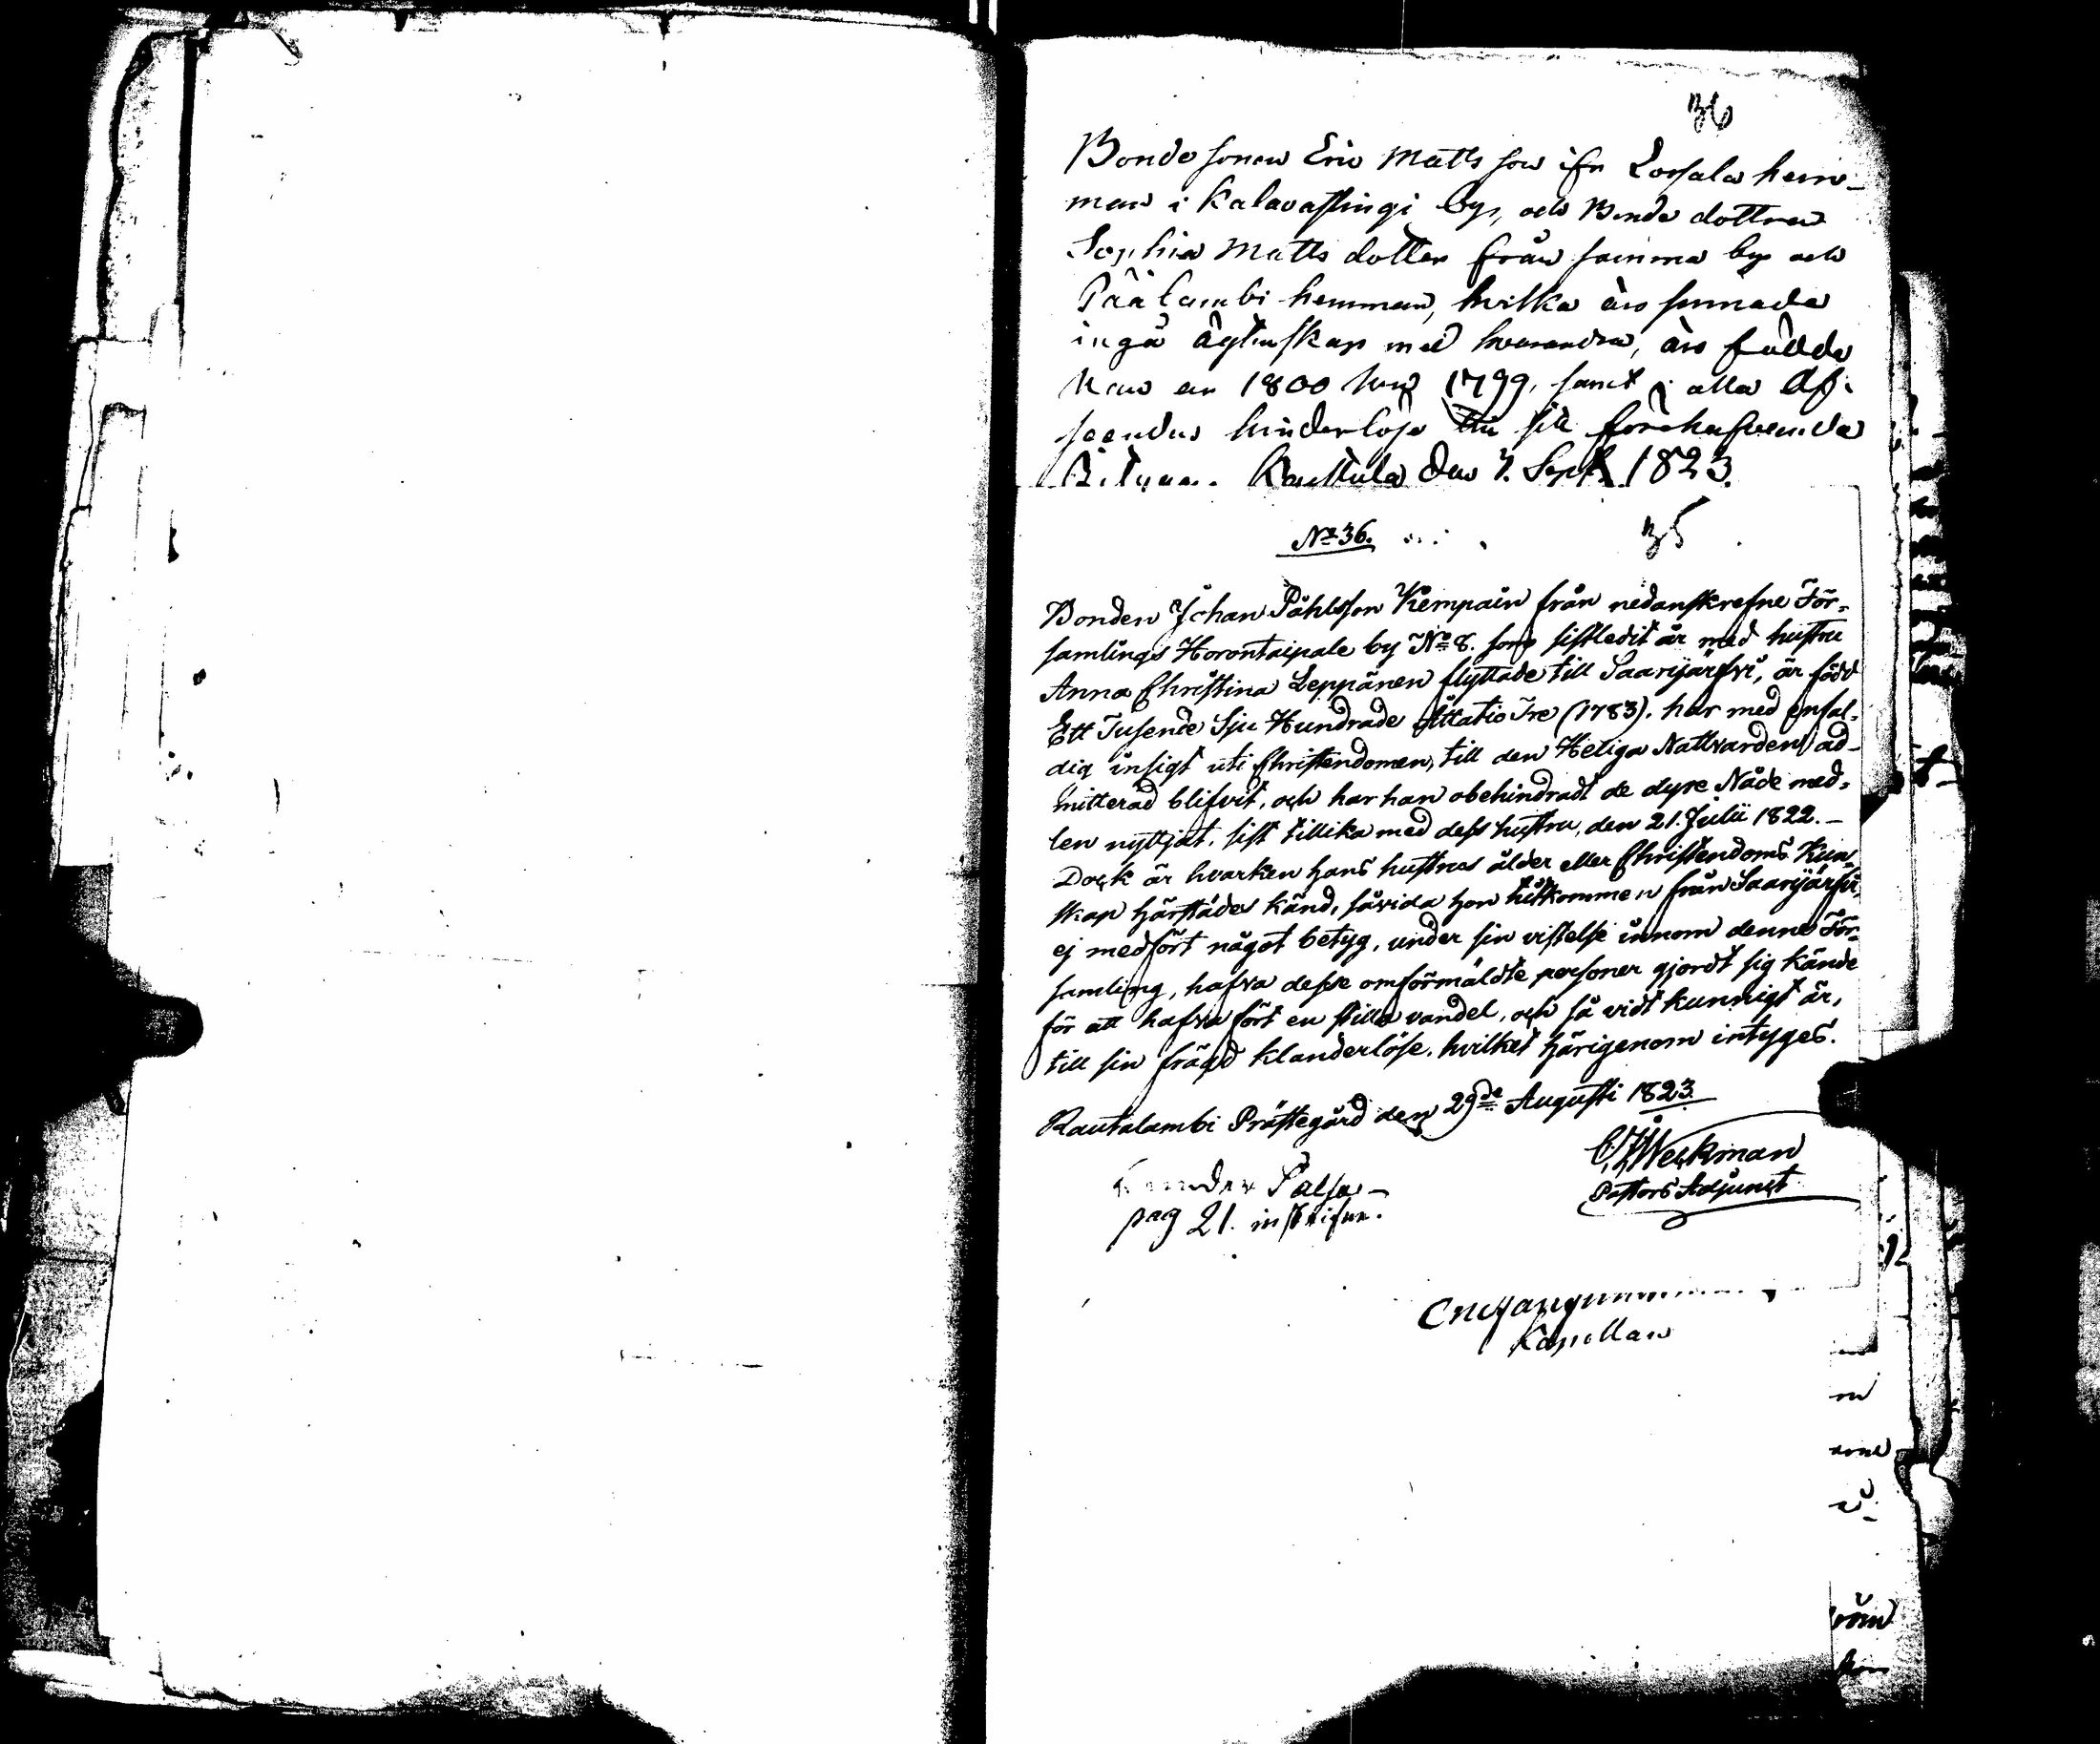 36
Bonde sonen Eric Matts son ifr Lorsala hem-
man i Kalavastingi by, och Bonde dottren
Sophia Matts dotter från samma by och
Päälambi hemman, hvilka äro sinnade
ingå ägtenskap med hvarandra, äro födde
Han år 1800 hon 1799, samt i alla Af-
seenden hinderlöse till sitt förehafvande
Betygas. Kauttula den 7. Sept. 1823.
No 36.
35
Bonden Johan Påhlsson Kempain från nedanskrefne För-
samlings Horontaipale by No 8. som sistledit år med hustru
Anna Christina Leppänen flyttade till Saarijärfvi, är född
Ett Tusende Sju Hundrade Åttatio Tre (1783). har med enfal-
dig insigt uti Christendomen, till den Heliga Nattvarden ad-
mitterad blifvit, och har han obehindradt de dyre Nåde med-
len nyttjat, sist tillika med dess hustru, den 21. Julii 1822.-
Dock är hvarken hans hustrus ålder eller Christendoms Kun-
skap härstädes känd, såvida hon hitkommen från Saarijärfvi
ej medfört något betyg, under sin vistelse innom denne För-
samling, hafva desse omförmäldte personer gjordt sig kände
för att hafva fört en stilla vandel, och så vidt kunnigt är,
till sin frägd klanderlöse, hvilket härigenom intyges.
Rautalambi Prästegård den 29de Augusti 1823.
Weckman
Pastors Adjunct
under Palsa-
pag 21. inskrifne.
Kapellan